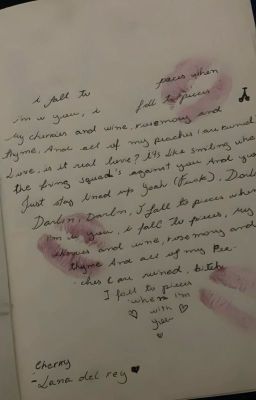 i fall to pieces when
i'm w you, i fall to pieces
My cherries and wine, rosemary and
thyme, And all of my peaches (are ruined
Love, is it real love? it's like smiling whe
the firing squad's against you And you
Just stay lined up Yeah (Fuck), Darl
Darlin, Darlin, I fall to pieces when
i'm w you, i fall to pieces, My
cherries and wine, rosemary and
thyme And all of my Pea-
ches (are ruined, bitch
I fall to pieces
when i'm
with
you
Cherry
- Lana del rey